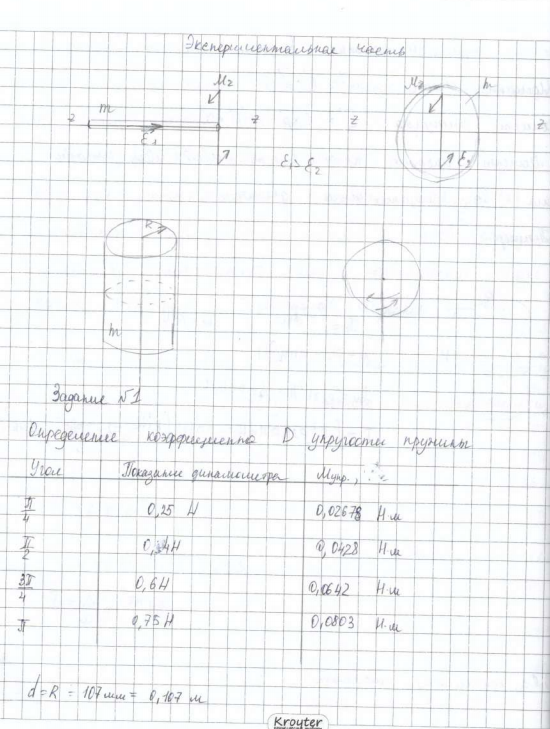 Экспериментальная часть
Mz
m
z
ε₁
z
ε₁ > ε₂
z
Mz
m
z
R
m
Задание №1
Определение коэффициента D упругости пружины
Угол Показание динамометра Mупр.,
π/4 0,25 Н 0,02678 Н·м
π/2 Н 0,0428 Н·м
3π/4 0,6 Н 0,0642 Н·м
π 0,75 Н 0,0803 Н·м
d = R = 107 мм = 0,107 м
Kroyter